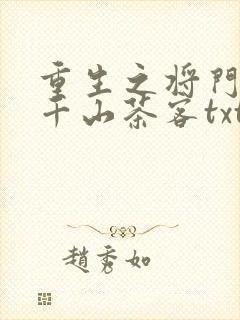 重生之将門
千山茶客txt
趙秀如